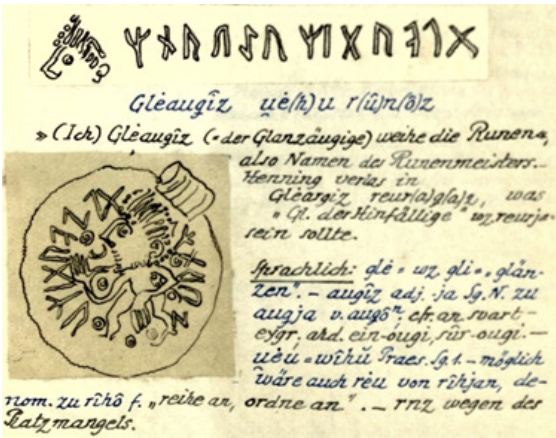 Glėaugîz u̯ė(h)u r(û)n(ô)z
» (Ich) Glėaugîz (= der Glanzäugige) weihe die Runen«,
also Namen des Runenmeisters. –
Henning verlas in
Gleargiz reur(a)g(a)z, was
„Gl. der Hinfällige" wz reurja-
sein sollte.
Sprachlich: glė = wz gli = „glän-
zen". – augîz adj. -ja Sg. N. zu
augja v. augôn, cfr. an. svart-
eygr, ahd. ein-ougi, sûr-ougi. –
u̯ėu = wîhŭ Praes. Sg. 1. – möglich
wäre auch rėu von rîhjan, de-
nom. zu rîhô f. „reihe an, ordne an". – rnz wegen des
Platzmangels.